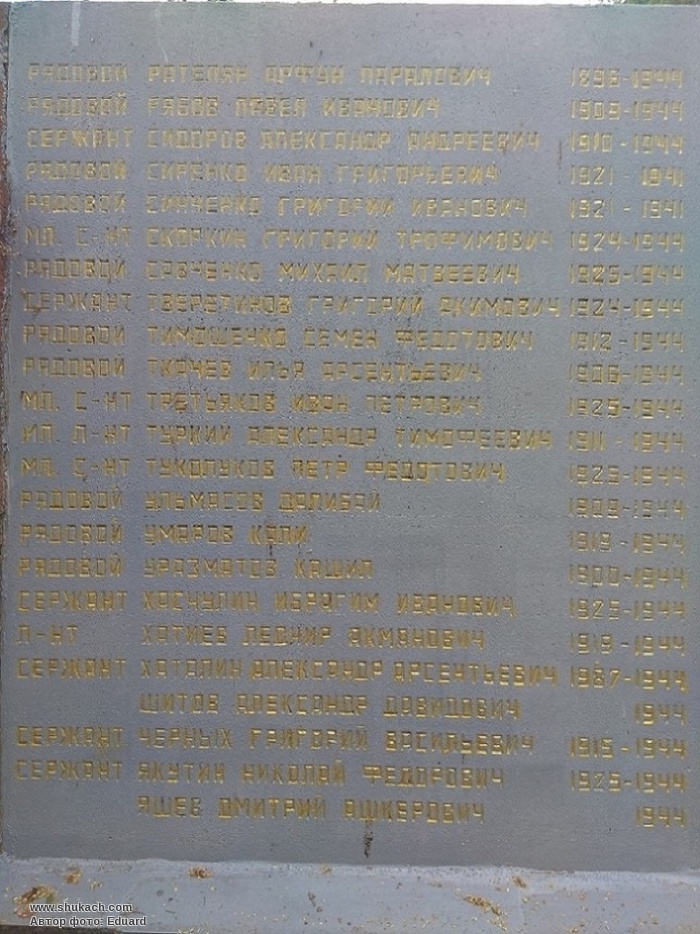 РЯДОВОЙ РАТЕПЯН АРФУН ПАРАЛОВИЧ 1898-1944
РЯДОВОЙ РЯБОВ ПАВЕЛ ИВАНОВИЧ 1909-1944
СЕРЖАНТ СИДОРОВ АЛЕКСАНДР АНДРЕЕВИЧ 1910-1944
РЯДОВОЙ СИРЕНКО ИВАН ГРИГОРЬЕВИЧ 1921-1941
РЯДОВОЙ СИНЧЕНКО ГРИГОРИЙ ИВАНОВИЧ 1921-1941
МЛ. С-НТ СКОРКИН ГРИГОРИЙ ТРОФИМОВИЧ 1924-1944
РЯДОВОЙ САВЧЕНКО МИХАИЛ МАТВЕЕВИЧ 1925-1944
СЕРЖАНТ ТВЕРЕТИНОВ ГРИГОРИЙ АКИМОВИЧ 1924-1944
РЯДОВОЙ ТИМОШЕНКО СЕМЕН ФЕДОТОВИЧ 1912-1944
РЯДОВОЙ ТКАЧЕВ ИЛЬЯ АРСЕНТЬЕВИЧ 1906-1944
МЛ. С-НТ ТРЕТЬЯКОВ ИВАН ПЕТРОВИЧ 1925-1944
МЛ. Л-НТ ТУРКИЙ АЛЕКСАНДР ТИМОФЕЕВИЧ 1911-1944
МЛ. С-НТ ТУКОЛУКОВ ПЕТР ФЕДОТОВИЧ 1923-1944
РЯДОВОЙ УЛЬМАСОВ ДАЛИБАЙ 1909-1944
РЯДОВОЙ УМАРОВ КАЛИ 1919-1944
РЯДОВОЙ УРАЗМАТОВ КАШИЛ 1900-1944
СЕРЖАНТ ХАСЧУЛИН ИБРАГИМ ИВАНОВИЧ 1923-1944
Л-НТ ХАТИЕВ ЛЕДНИР АКМАНОВИЧ 1919-1944
СЕРЖАНТ ХАТАЛИН АЛЕКСАНДР АРСЕНТЬЕВИЧ 1987-1944
ШИТОВ АЛЕКСАНДР ДАВИДОВИЧ 1944
СЕРЖАНТ ЧЕРНЫХ ГРИГОРИЙ ВАСИЛЬЕВИЧ 1915-1944
СЕРЖАНТ ЯКУТИН НИКОЛАЙ ФЕДОРОВИЧ 1925-1944
ЯШЕВ ДМИТРИЙ АШКЕРОВИЧ 1944
www.shukach.com
Автор фото: Eduard